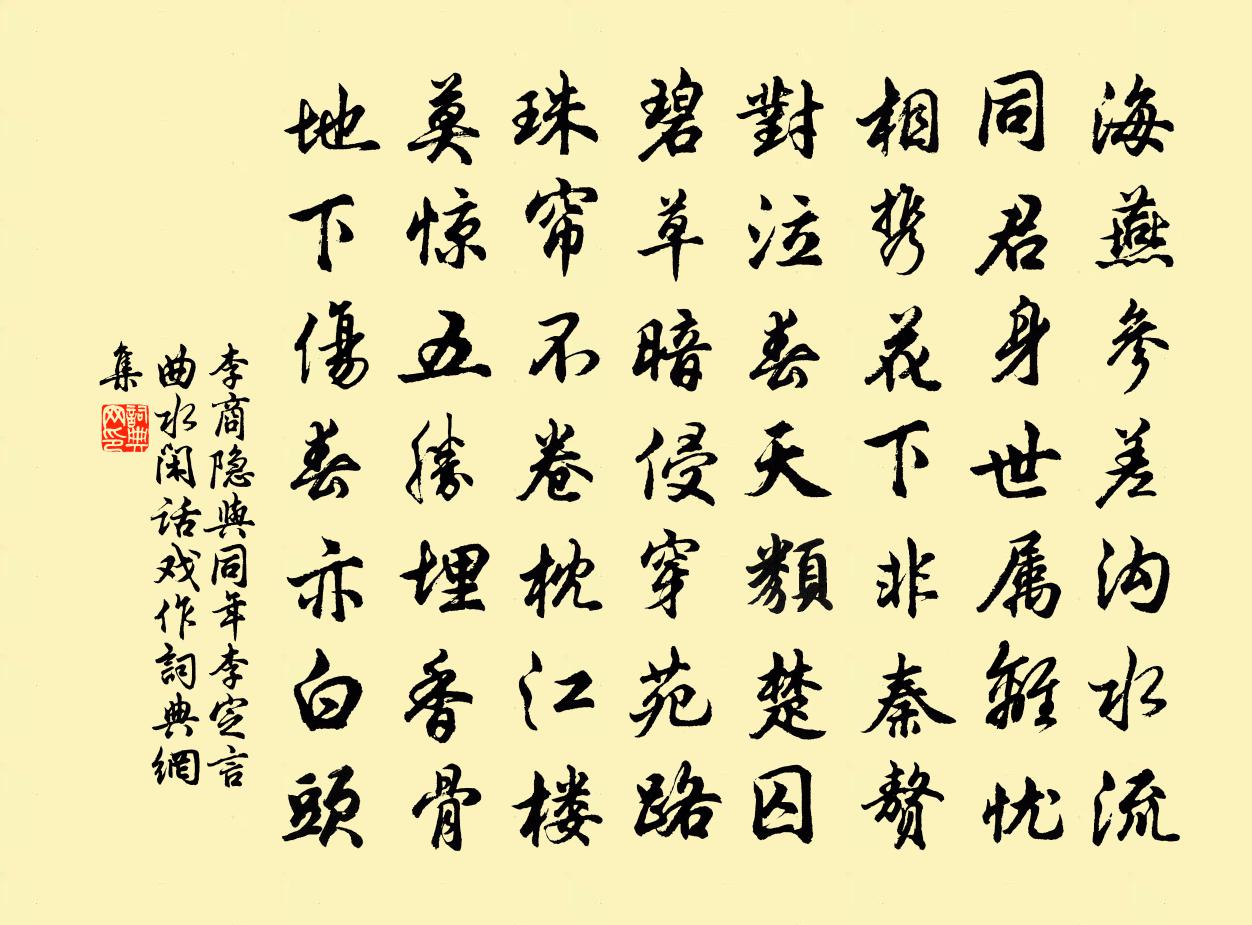 海燕參差沟水流
同君身世属離忧
相携花下非秦贅
對泣春天類楚囚
碧草暗侵穿苑路
珠帘不卷枕江楼
莫惊五勝埋香骨
地下傷春亦白頭
李商隐與同年李定言
曲水闲话戏作詞典網
集
詞典
网印